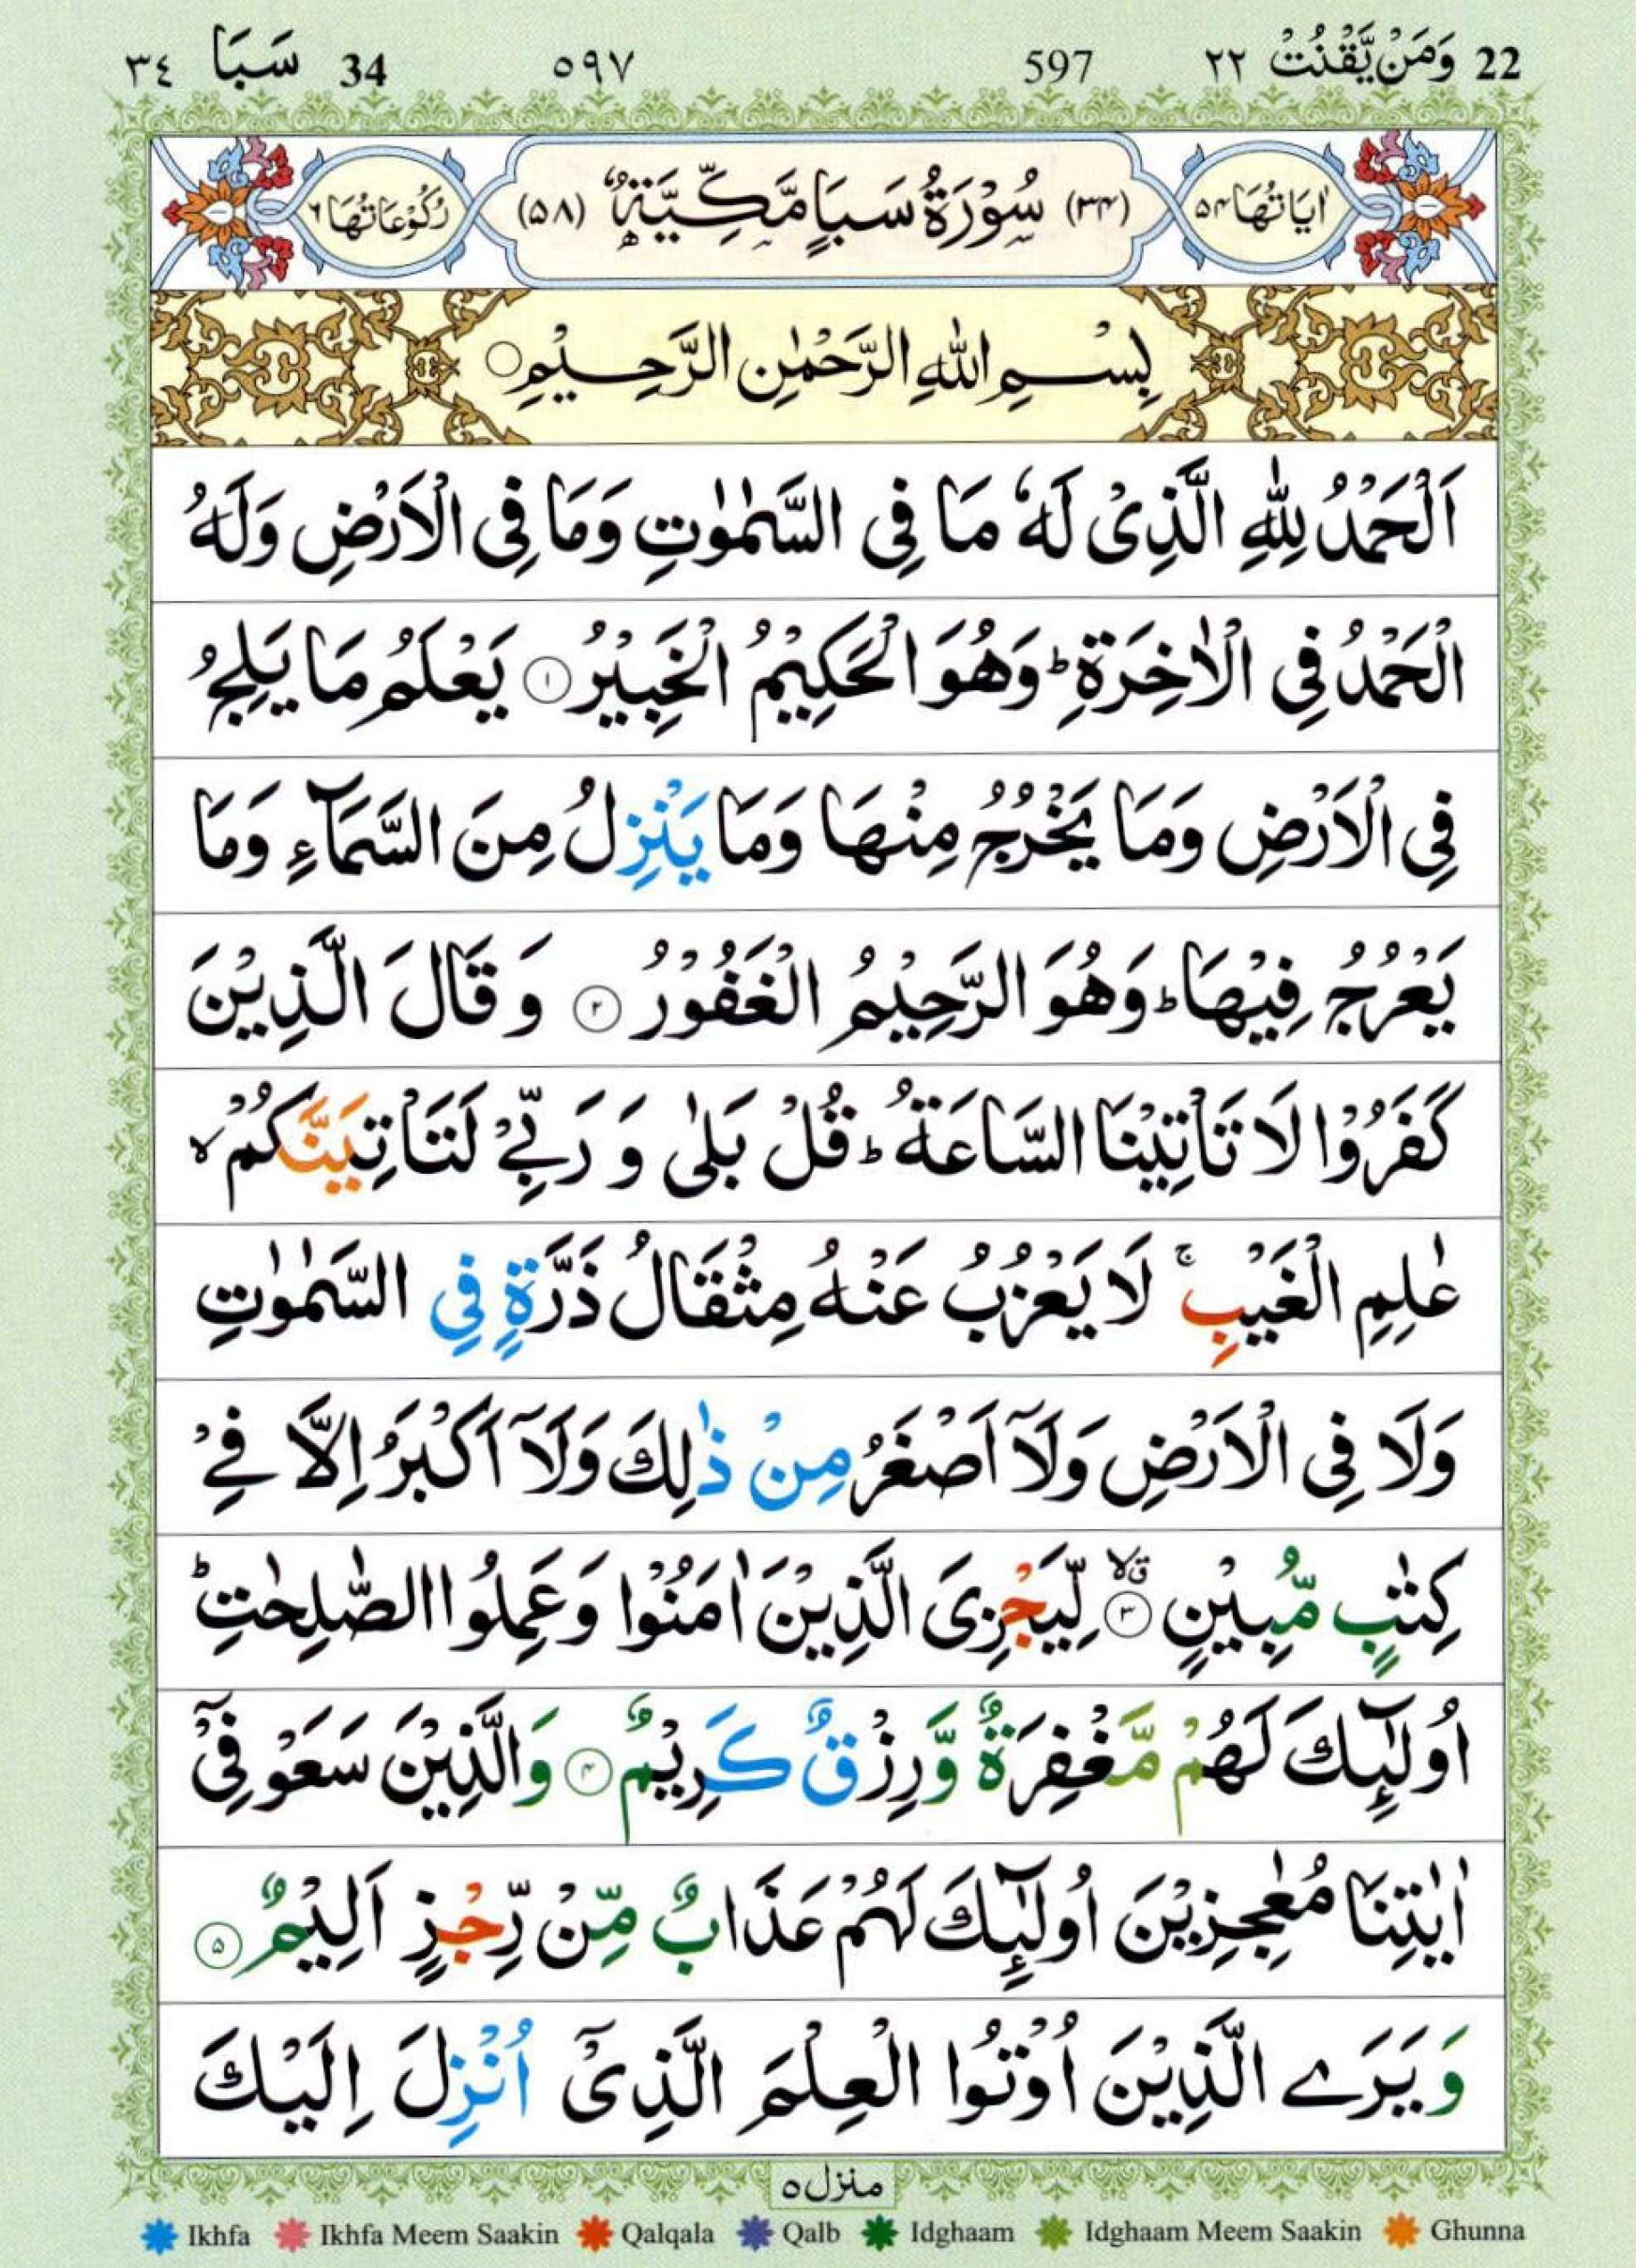 22 وَمَنْ يَّقْنُتْ ٢٢ 597 ٥٩٧ 34 سَبَا ٣٤
اٰيَاتُهَا ٥٤ (٣٤) سُوْرَةُ سَبَاٍ مَّكِّيَّةٌ (٥٨) رُكُوْعَاتُهَا ٦
بِسْمِ اللّٰهِ الرَّحْمٰنِ الرَّحِيْمِ ○
اَلْحَمْدُ لِلّٰهِ الَّذِىْ لَهٗ مَا فِى السَّمٰوٰتِ وَمَا فِى الْاَرْضِ وَلَهُ
الْحَمْدُ فِى الْاٰخِرَةِ ؕ وَهُوَ الْحَكِيْمُ الْخَبِيْرُ ١ يَعْلَمُ مَا يَلِجُ
فِى الْاَرْضِ وَمَا يَخْرُجُ مِنْهَا وَمَا يَنْزِلُ مِنَ السَّمَآءِ وَمَا
يَعْرُجُ فِيْهَا ؕ وَهُوَ الرَّحِيْمُ الْغَفُوْرُ ٢ وَقَالَ الَّذِيْنَ
كَفَرُوْا لَا تَاْتِيْنَا السَّاعَةُ ؕ قُلْ بَلٰى وَرَبِّىْ لَتَاْتِيَنَّكُمْ ۙ
عٰلِمِ الْغَيْبِ ۚ لَا يَعْزُبُ عَنْهُ مِثْقَالُ ذَرَّةٍ فِى السَّمٰوٰتِ
وَلَا فِى الْاَرْضِ وَلَآ اَصْغَرُ مِنْ ذٰلِكَ وَلَآ اَكْبَرُ اِلَّا فِىْ
كِتٰبٍ مُّبِيْنٍ ٣ قلا لِّيَجْزِىَ الَّذِيْنَ اٰمَنُوْا وَعَمِلُوا الصّٰلِحٰتِ ؕ
اُولٰٓئِكَ لَهُمْ مَّغْفِرَةٌ وَّرِزْقٌ كَرِيْمٌ ٤ وَالَّذِيْنَ سَعَوْ فِىْٓ
اٰيٰتِنَا مُعٰجِزِيْنَ اُولٰٓئِكَ لَهُمْ عَذَابٌ مِّنْ رِّجْزٍ اَلِيْمٌ ٥
وَيَرَى الَّذِيْنَ اُوْتُوا الْعِلْمَ الَّذِىْٓ اُنْزِلَ اِلَيْكَ
منزل ٥
Ikhfa Ikhfa Meem Saakin Qalqala Qalb Idghaam Idghaam Meem Saakin Ghunna